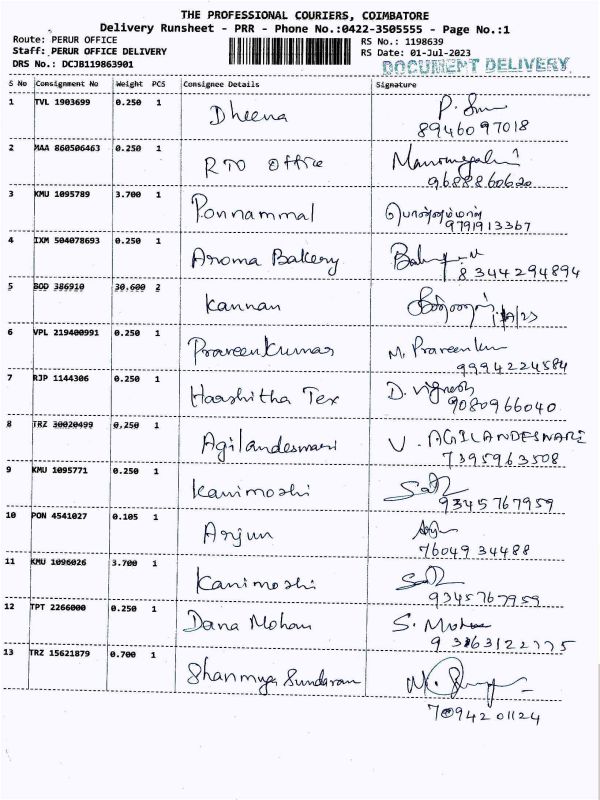 THE PROFESSIONAL COURIERS, COIMBATORE
Delivery Runsheet - PRR - Phone No.:0422-3505555 - Page No.:1
Route: PERUR OFFICE RS No.: 1198639
Staff: PERUR OFFICE DELIVERY RS Date: 01-Jul-2023
DRS No.: DCJB119863901 DOCUMENT DELIVERY
S No Consignment No Weight PCS Consignee Details Signature
1 TVL 1903699 0.250 1 Dheena
8946097018
2 MAA 860506463 0.250 1 RTO office
9688860620
3 KMU 1095789 3.700 1 Ponnammal பொன்னம்மாள்
9791913367
4 IXM 504078693 0.250 1 Aroma Bakery
8344294894
5 BOD 386910 30.600 2 Kannan
6 VPL 219400991 0.250 1 Praveenkumar M. Praveenkum
9994224584
7 RJP 1144306 0.250 1 Haashitha Tex D. Vignesh
9080966040
8 TRZ 30020499 0,250 1 Agilandeswari V. AGILANDESWARI
7395963508
9 KMU 1095771 0.250 1 Kanimozhi
9345767959
10 PON 4541027 0.105 1 Arjun
7604934488
11 KMU 1096026 3.700 1 Kanimozhi
9345767959
12 TPT 2266000 0.250 1 Dana Mohan S. Mohan
13 TRZ 15621879 0.700 1 Shanmuga Sundaram
7094201124